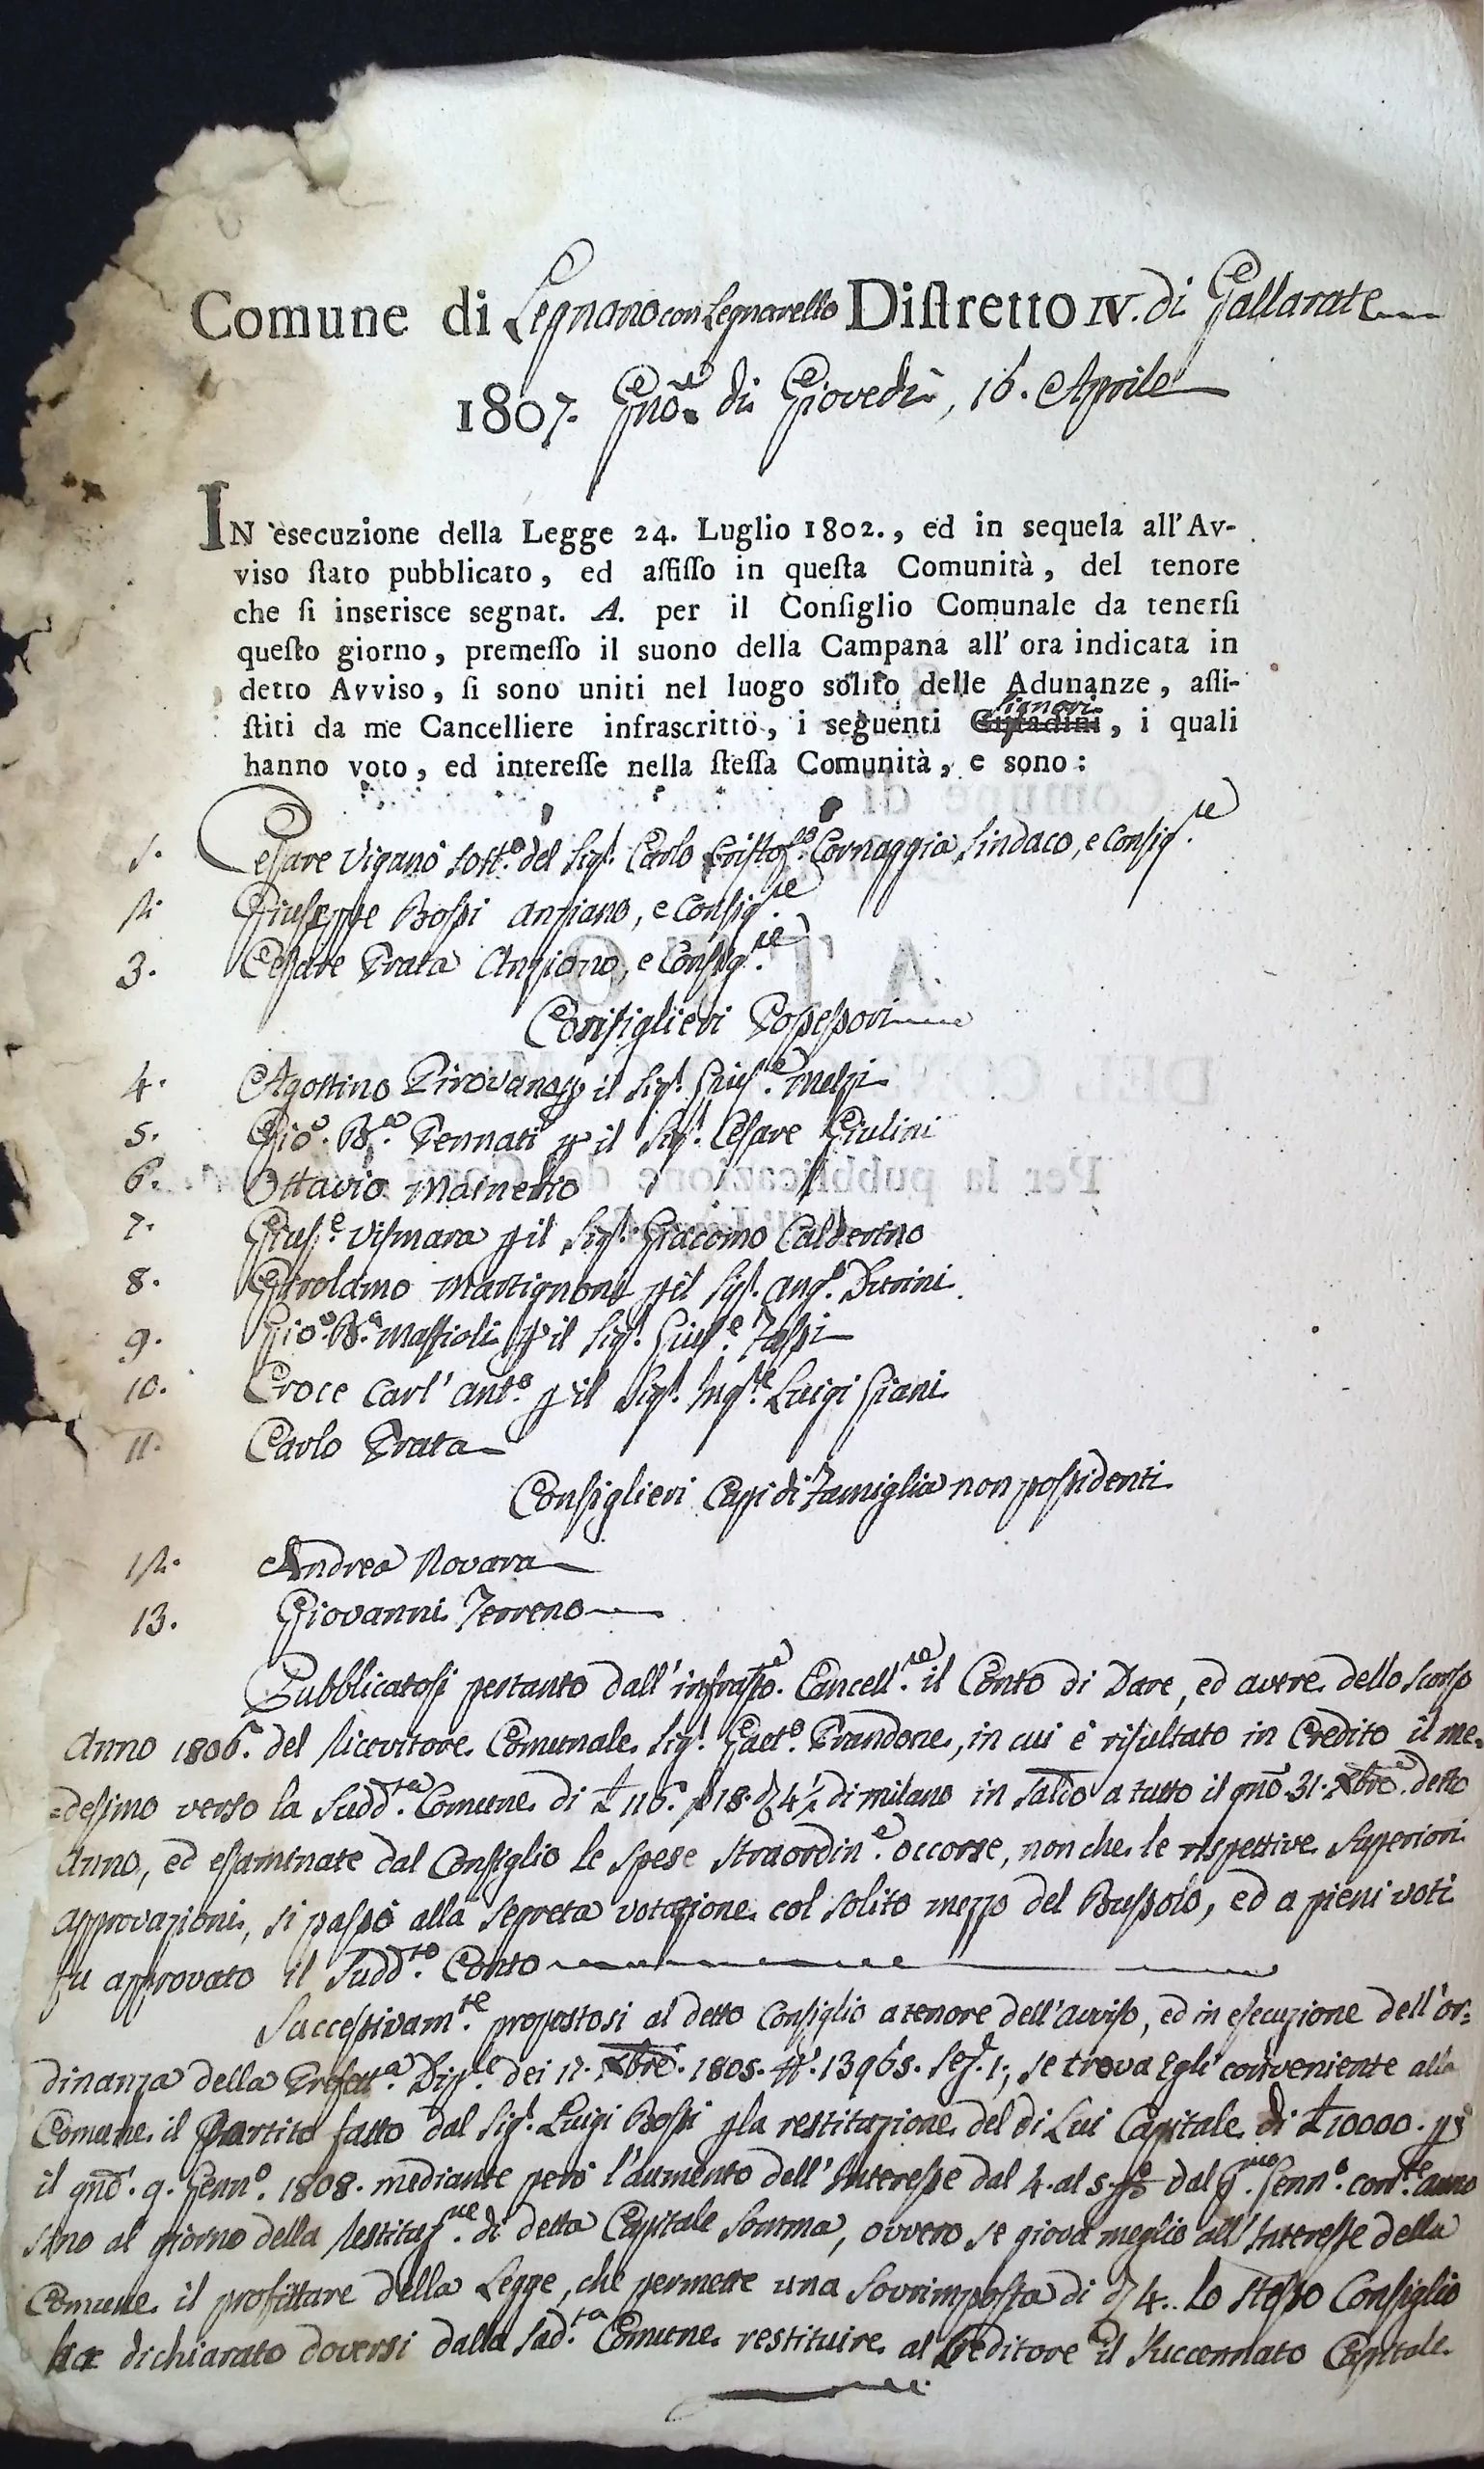 Comune di Legnano con Legnarello Diſtretto IV. di Gallarate
1807. Gno.e di Giovedì, 16. Aprile
IN esecuzione della Legge 24. Luglio 1802., ed in sequela all'Av-
viso ſtato pubblicato, ed affiſſo in queſta Comunità, del tenore
che ſi inserisce segnat. A. per il Conſiglio Comunale da tenerſi
queſto giorno, premeſſo il suono della Campana all' ora indicata in
detto Avviso, ſi sono uniti nel luogo solito delle Adunanze, aſſi-
signori
ſtiti da me Cancelliere infrascritto, i seguenti Cittadini, i quali
hanno voto, ed intereſſe nella ſteſſa Comunità, e sono:
1. Cesare Viganò sost.o del Sig.r Carlo Cristof.o Cornaggia, Sindaco, e Consig.re
2. Giuseppe Bossi Anziano, e Consig.re
3. Cesare Prata Anziano, e Consig.re
Consiglieri Possessori
4. Agostino Pirovano p il Sig.r Gius.e Melzi
5. Gio. B.a Pennati p il Sig.r Cesare Giulini
6. Ottavio Mainerio
7. Gius.e Vismara p il Sig.r Giacomo Calderino
8. Girolamo Martignoni p il Sig.r Ang.o Durini
9. Gio. B.a Massioli p il Sig.r Gius.e Tossi
10. Croce Carl' Ant.o p il Sig.r Ing.re Luigi Giani
11. Carlo Prata
Consiglieri Capi di Famiglia non possidenti
12. Andrea Novara
13. Giovanni Terreno
Pubblicatosi pertanto dall'infrasto. Cancell.re il Conto di Dare, ed avere dello scorso
Anno 1806. del Ricevitore Comunale Sig.r Gaet.o Prandone, in cui è risultato in Credito il me-
=desimo verso la Sudd.ta Comune di £ 116. s 18. d 4 1/2 di milano in saldo a tutto il gno 31. Xbre detto
Anno, ed esaminate dal Consiglio le spese straordin.e occorse, non che le rispettive Superiori
approvazioni, si passò alla segreta votazione col solito mezzo del Bussolo, ed a pieni voti
fu approvato il Sudd.to Conto
Successivam.te propostosi al detto Consiglio a tenore dell'avviso, ed in esecuzione dell'or-
dinanza della Prefett.a Dip.le dei 17. Xbre. 1805. N. 13965. Sez. 1, se trova Egli conveniente alla
Comune il Partito fatto dal Sig.r Luigi Bossi p la restituzione del di Lui Capitale di £ 10000. p
il gno. 9. Genn.o 1808. mediante però l'aumento dell'Interesse dal 4. al 5. dal p.mo Genn.o corr.te anno
sino al giorno della Restituz.ne di detta Capitale Somma, ovvero se giova meglio all'Interesse della
Comune il profittare della Legge, che permette una Sovrimposta di d 4. Lo stesso Consiglio
ha dichiarato doversi dalla Sud.ta Comune restituire al Creditore il succennato Capitale